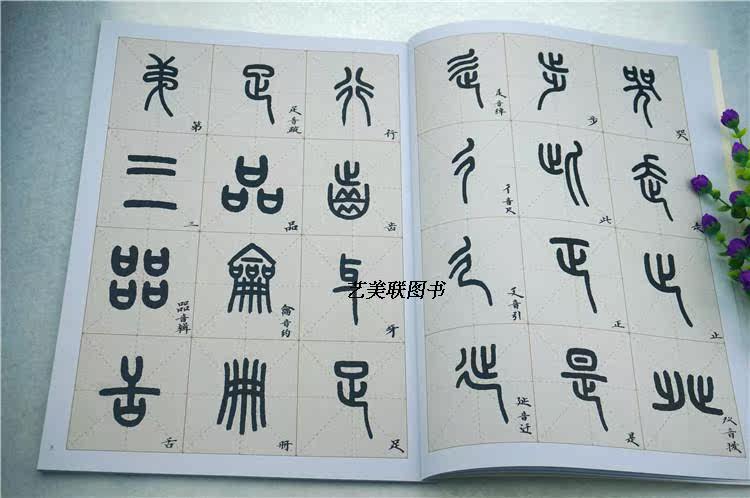 哭
走
止
癶音拨
步
此
正
是
辵音绰
彳音尺
廴音引
㢟音迁
行
齿
牙
足
疋音疏
品
龠音约
册
第
三
㗊音辑
舌
艺美联图书